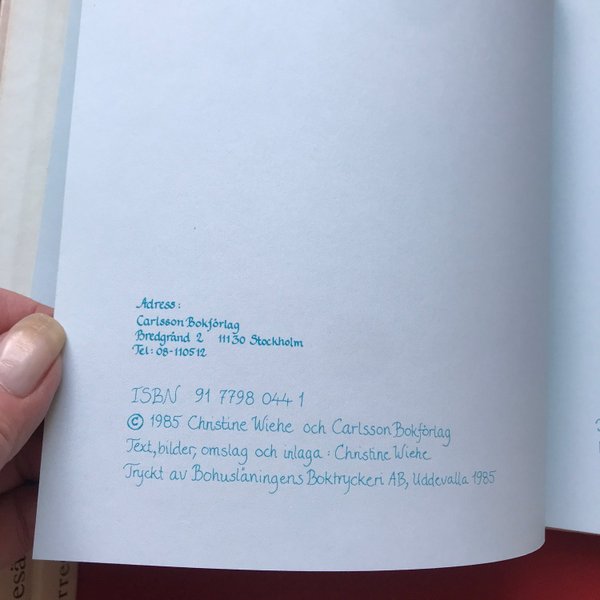 Adress:
Carlsson Bokförlag
Bredgränd 2 111 30 Stockholm
Tel: 08-110512
ISBN 91 7798 044 1
© 1985 Christine Wiehe och Carlsson Bokförlag
Text, bilder, omslag och inlaga: Christine Wiehe
Tryckt av Bohusläningens Boktryckeri AB, Uddevalla 1985